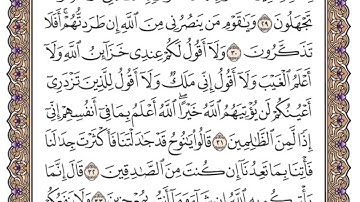 تَجْهَلُونَ ٢٩ وَيَٰقَوْمِ مَن يَنصُرُنِي مِنَ ٱللَّهِ إِن طَرَدتُّهُمْ أَفَلَا
تَذَكَّرُونَ ٣٠ وَلَآ أَقُولُ لَكُمْ عِندِي خَزَآئِنُ ٱللَّهِ وَلَآ
أَعْلَمُ ٱلْغَيْبَ وَلَآ أَقُولُ إِنِّي مَلَكٌ وَلَآ أَقُولُ لِلَّذِينَ تَزْدَرِيٓ
أَعْيُنُكُمْ لَن يُؤْتِيَهُمُ ٱللَّهُ خَيْرًا ٱللَّهُ أَعْلَمُ بِمَا فِيٓ أَنفُسِهِمْ إِنِّيٓ
إِذًا لَّمِنَ ٱلظَّٰلِمِينَ ٣١ قَالُوا۟ يَٰنُوحُ قَدْ جَٰدَلْتَنَا فَأَكْثَرْتَ جِدَٰلَنَا
فَأْتِنَا بِمَا تَعِدُنَآ إِن كُنتَ مِنَ ٱلصَّٰدِقِينَ ٣٢ قَالَ إِنَّمَا
يَأْتِيكُم بِهِ ٱللَّهُ إِن شَآءَ وَمَآ أَنتُم بِمُعْجِزِينَ ٣٣ وَلَا يَنفَعُكُمْ